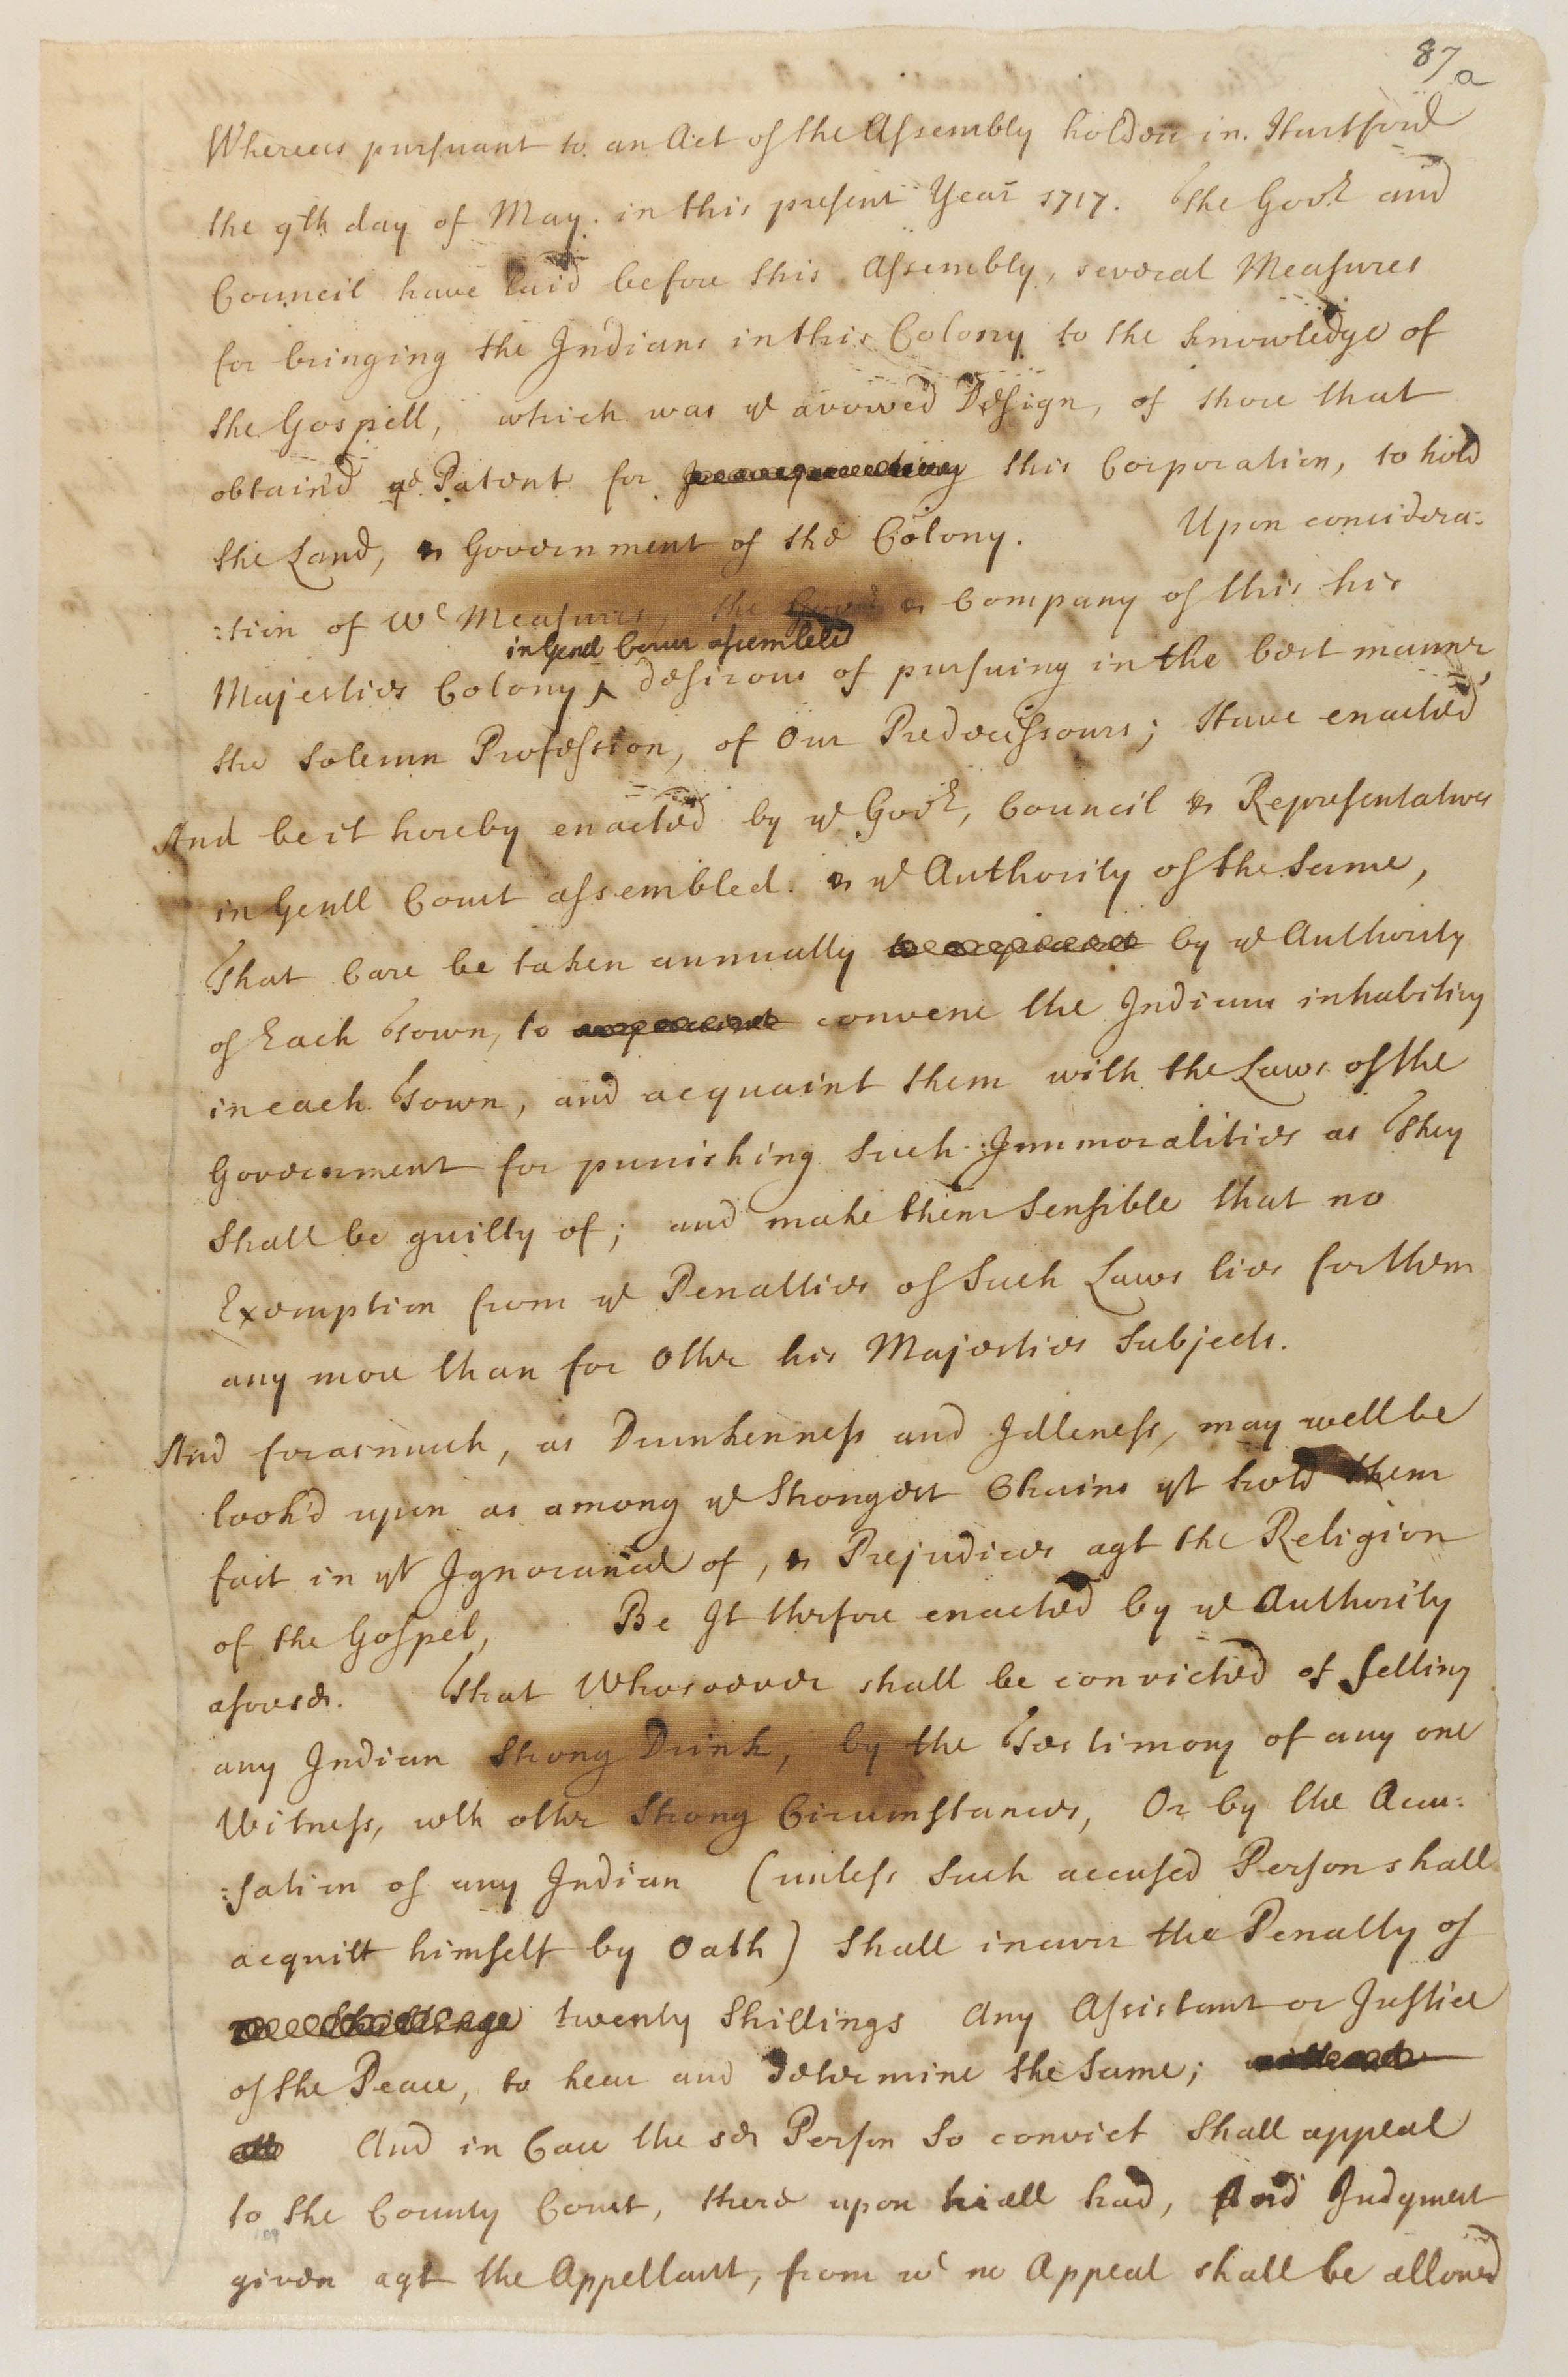 87
a
Whereas pursuant to an Act of the Assembly holden in. Hartford
the 9th day of May. in this present Year 1717. The Govr and
Council have laid before this Assembly, several Measures
for bringing the Indians in this Colony to the knowledge of
the Gospell, which was ye avowed Design, of those that
obtain'd ye Patent for this Corporation, to hold
the Land, & Government of the Colony. Upon considera:
:tion of wc Measures, the Govr & Company of this his
in Genll Court assembled
Majesties Colony ‸ desirous of pursuing in the best manner,
the Solemn Profession, of Our Predecessours; Have enacted
And be it hereby enacted by ye Govr, Council & Representatives
in Genll Court assembled. & ye Authority of the Same,
That Care be taken annually by ye Authority
of Each Town, to convene the Indians inhabiting
in each Town, and acquaint them with the Laws of the
Government for punishing Such Immoralities as They
Shall be guilty of; and make them Sensible that no
Exemption from ye Penalties of Such Laws lies for them
any more than for Other his Majesties Subjects.
And forasmuch, as Drunkenness and Idleness, may well be
look'd upon as among ye Strongest Chains yt hold them
fast in yr Ignorance of, & Prejudices agt the Religion
of the Gospel, Be It therfore enacted by ye Authority
aforesd. That Whosoever shall be convicted of Selling
any Indian Strong Drink, by the Testimony of any one
Witness, wth other Strong Circumstances, Or by the Accu:
:sation of any Indian (unless Such accused Person shall
acquitt himself by Oath) Shall incurr the Penalty of
twenty Shillings Any Assistant or Justice
of the Peace, to hear and determine the Same;
And in Case the sd Person So convict Shall appeal
to the County Court, there upon triall had, And Judgment
given agt the Appellant, from wc no Appeal shall be allowed